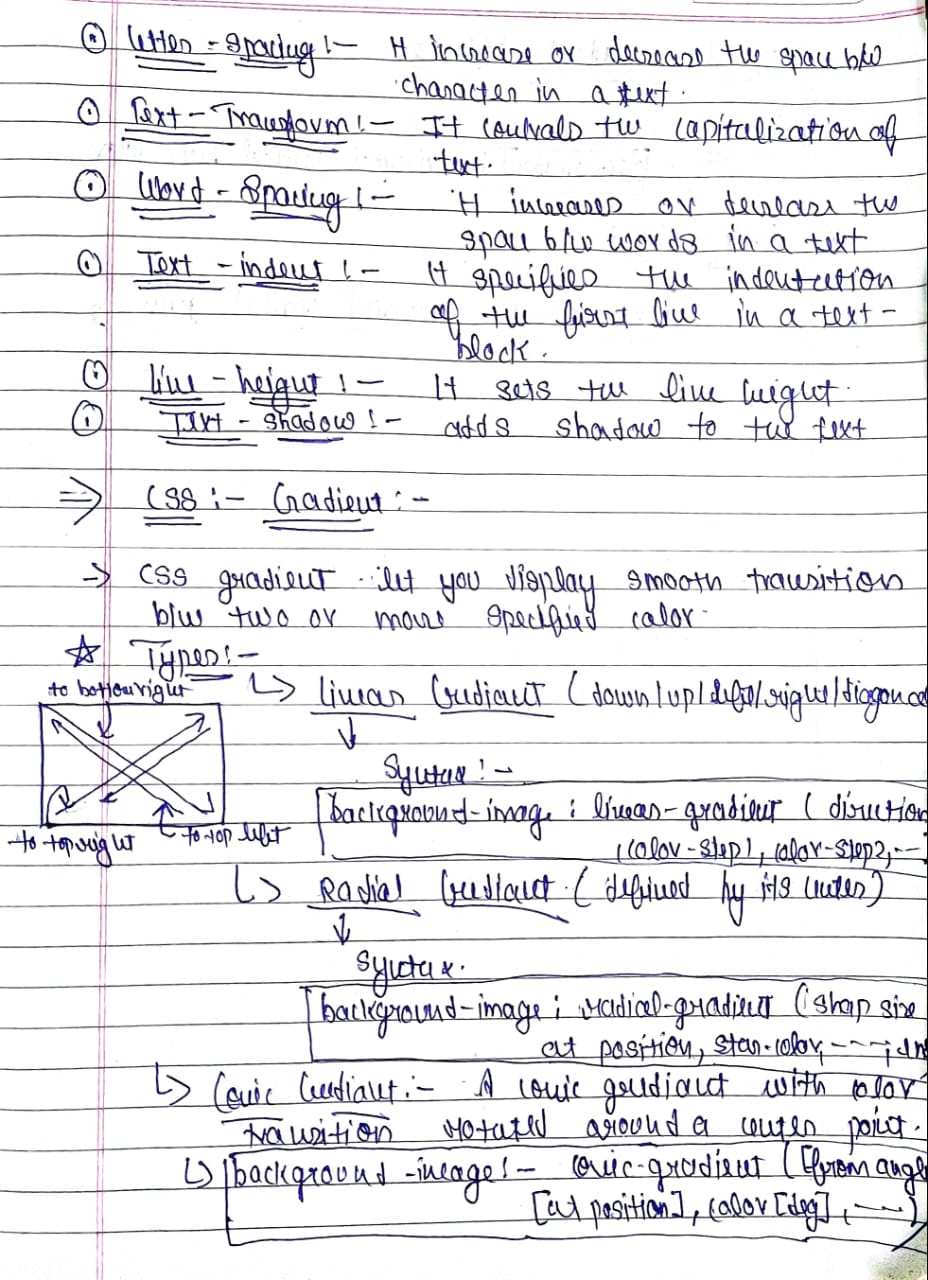 Letter - Spacing :- It increase or decrease the space b/w
character in a text.
Text - Transform :- It controls the capitalization of
text.
Word - Spacing :- It increases or decrease the
space b/w words in a text
Text - indent :- It specifies the indentation
of the first line in a text -
block.
line - height :- It sets the line height.
Text - shadow :- adds shadow to the text
⇒ CSS :- Gradient :-
→ CSS gradient let you display smooth transition
b/w two or more specified color.
☆ Types :-
to bottom right
↳ linear Gradient (down/up/left/right/diagonal
Syntax :-
background-image : linear-gradient (direction
, color-step1, color-step2, ---
to top right
to top left
↳ Radial Gradient (defined by its center)
Syntax.
background-image : radial-gradient (shap size
at position, star-color, ---
↳ Conic Gradient :- A conic gradient with color
transition rotated around a center point.
↳ background-image :- conic-gradient ([from angle
[at position], color [deg], ---)